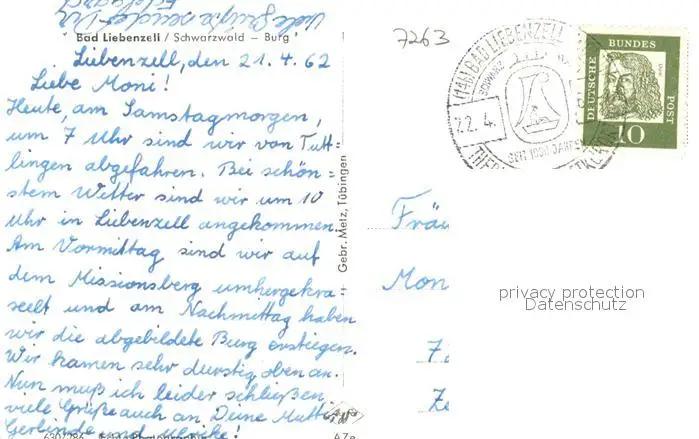 Viele Grüße sendet Dir
Bad Liebenzell / Schwarzwald – Burg
7263
Liebenzell, den 21.4.62
Liebe Moni!
Heute, am Samstagmorgen,
um 7 Uhr sind wir von Tutt-
lingen abgefahren. Bei schön-
stem Wetter sind wir um 10
Uhr in Liebenzell angekommen.
Am Vormittag sind wir auf
dem Missionsberg umhergekra
xelt und am Nachmittag haben
wir die abgebildete Burg erstiegen.
Wir kamen sehr durstig oben an.
Nun muß ich leider schließen
viele Grüße auch an Deine Mutti
Gerlinde und Ulrike!
Gebr. Metz, Tübingen
(14b) BAD LIEBENZELL
22. 4.
SEIT 1000 JAHREN
DEUTSCHE
BUNDES
POST
10
Fräu
Mon
privacy protection
Datenschutz